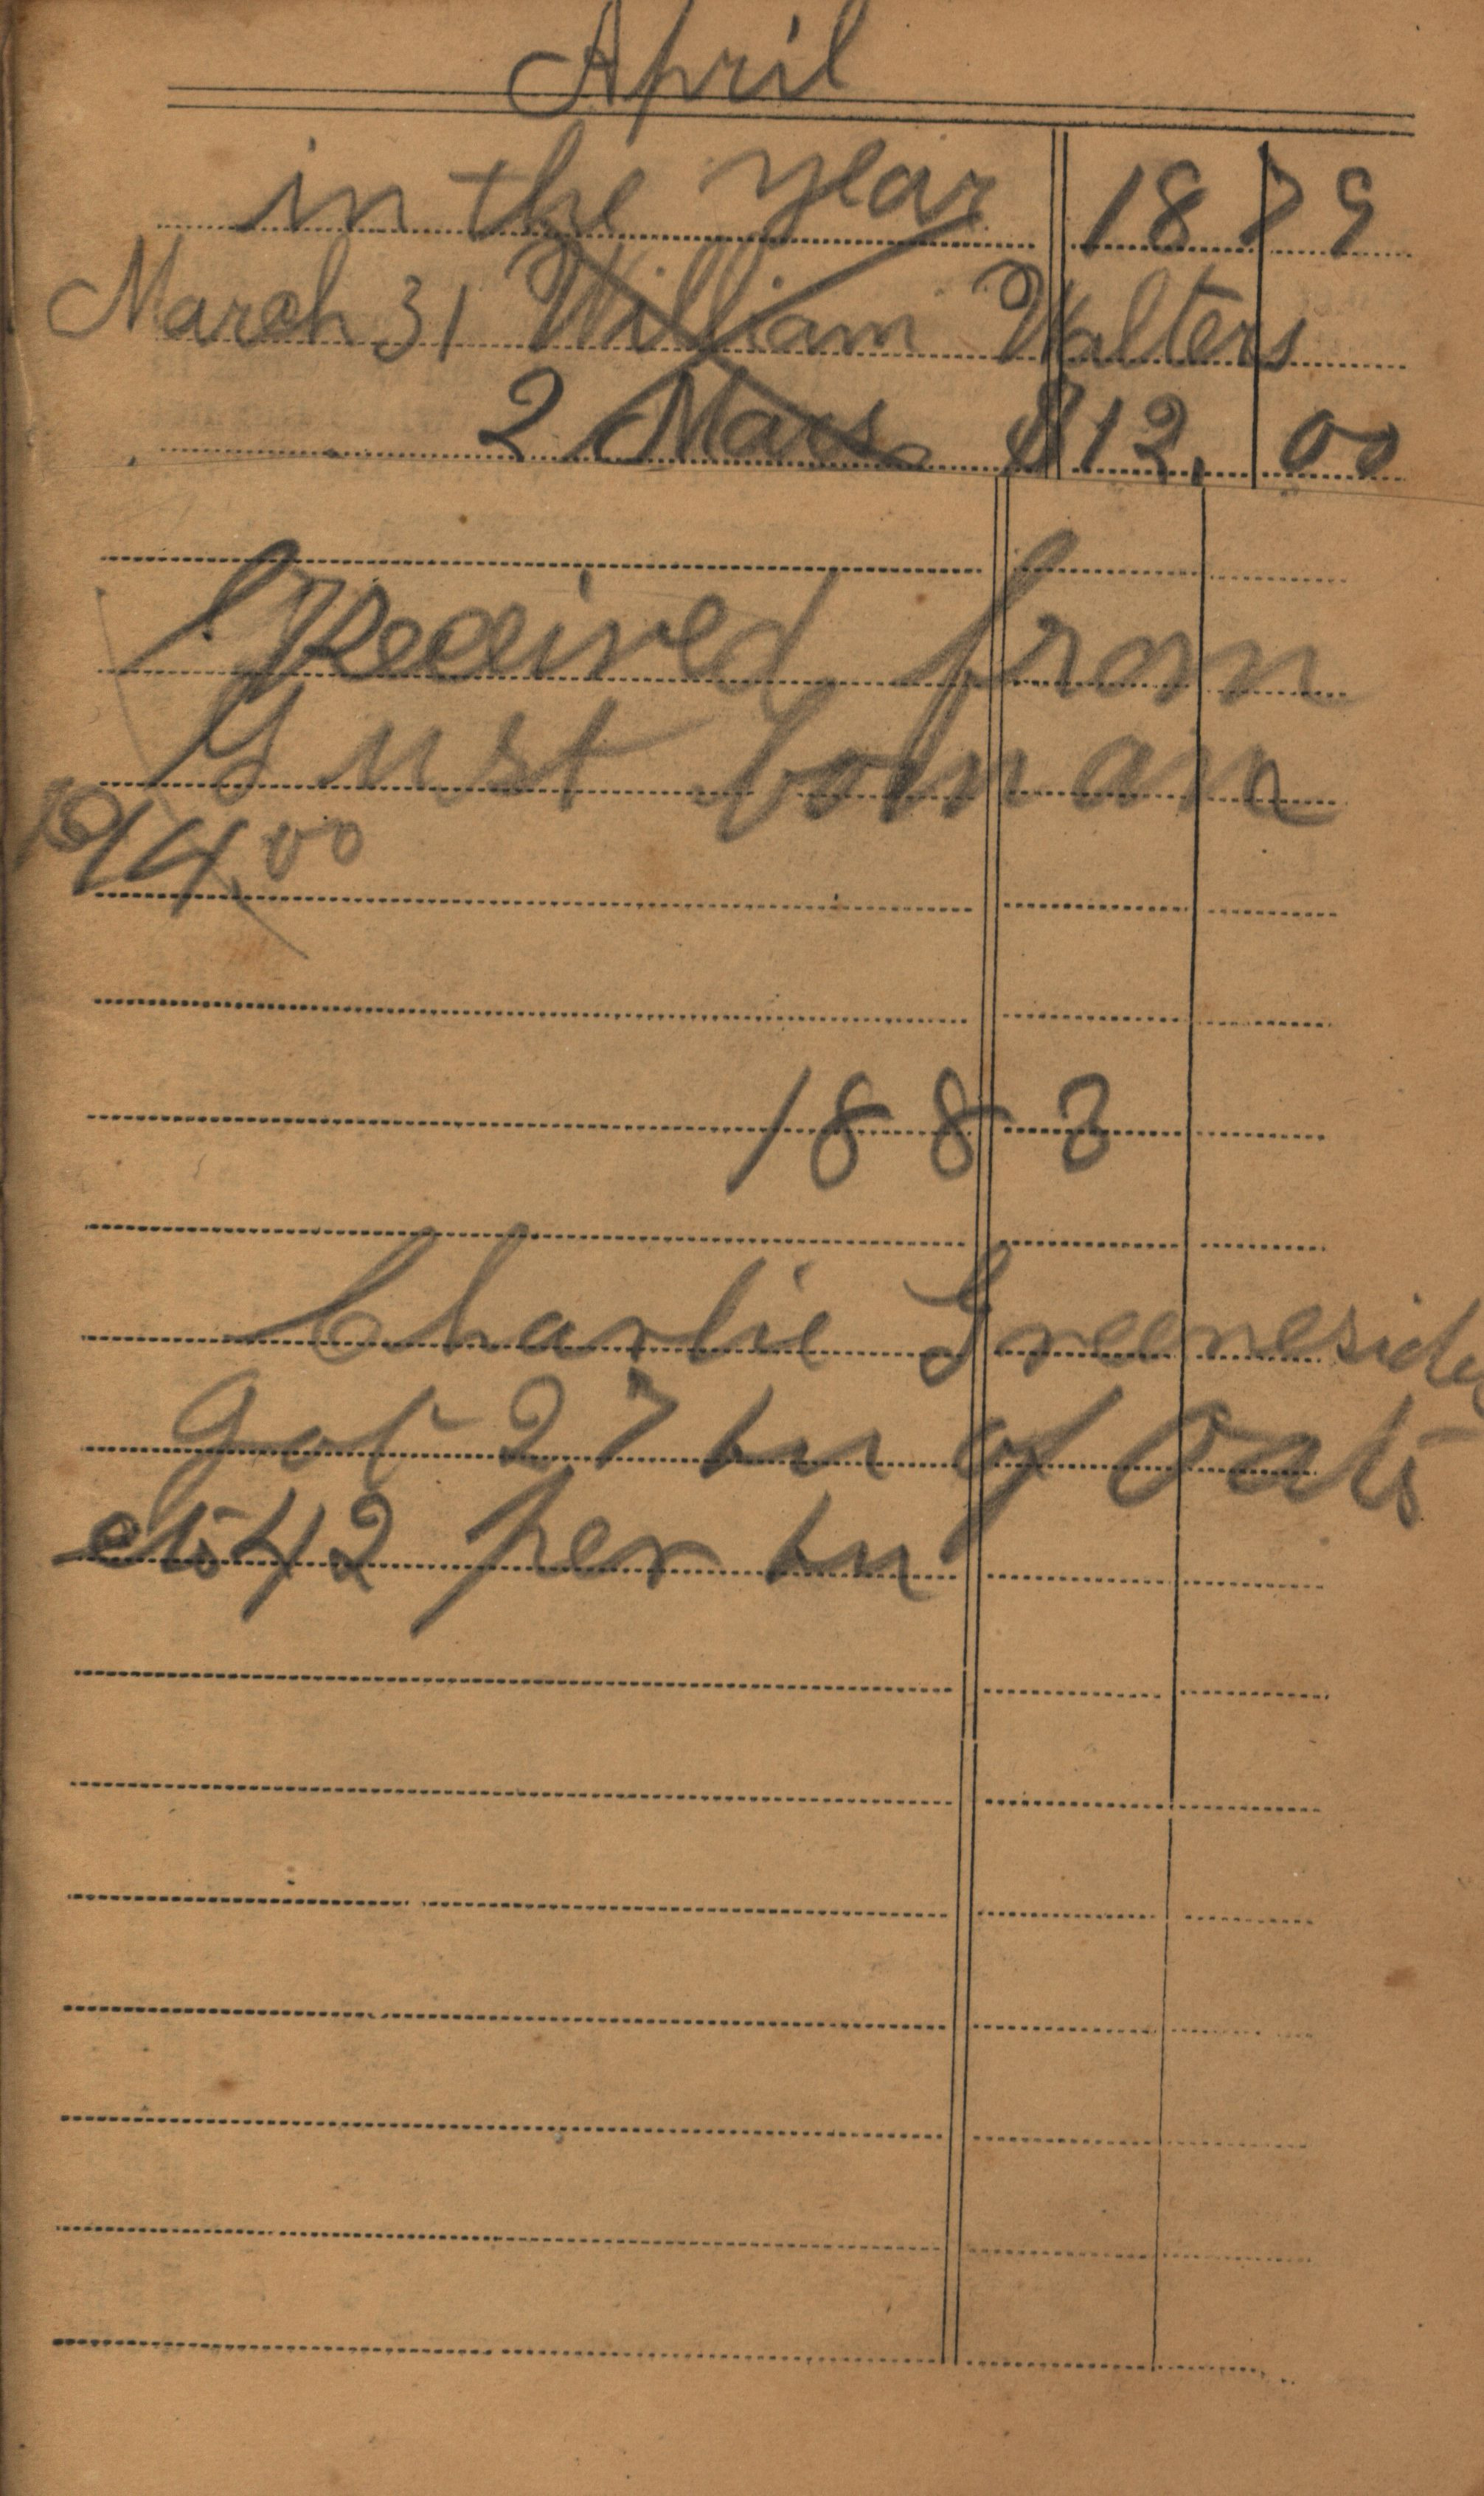 April
in the year 1879
March 31 William Walters
2 Mars $12,00
Received from
Gust
14,00
1883
Charlie Greenesides
got 27 bu of Oats
cts 42 per bu